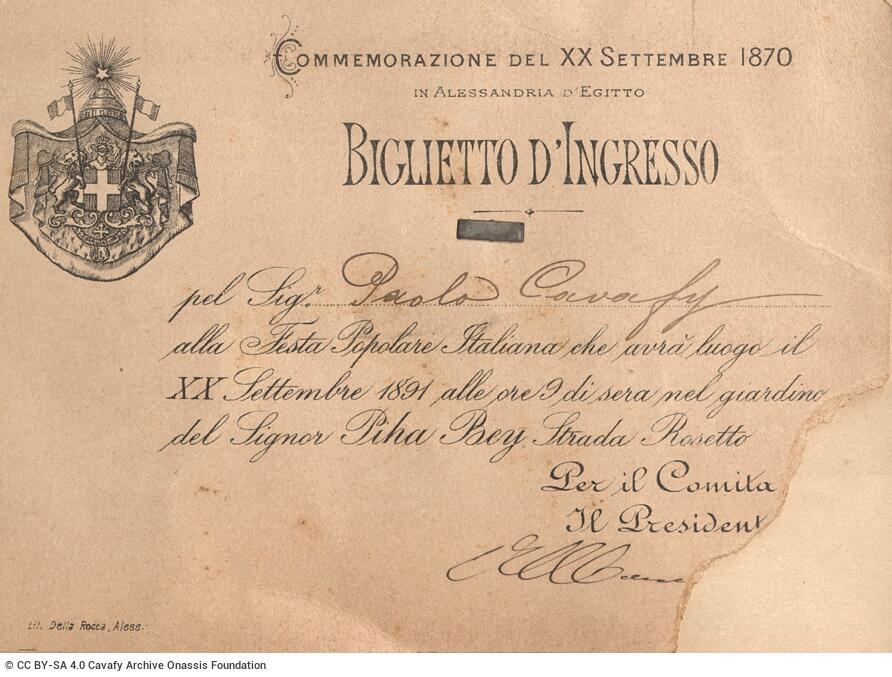 COMMEMORAZIONE DEL XX SETTEMBRE 1870
IN ALESSANDRIA D'EGITTO
BIGLIETTO D'INGRESSO
pel Sig.r Paolo Cavafy
alla Festa Popolare Italiana che avrà luogo il
XX Settembre 1891 alle ore 9 di sera nel giardino
del Signor Piha Bey, Strada Rosetto
Per il Comita
Il President
Lit. Della Rocca, Aless.
© CC BY-SA 4.0 Cavafy Archive Onassis Foundation